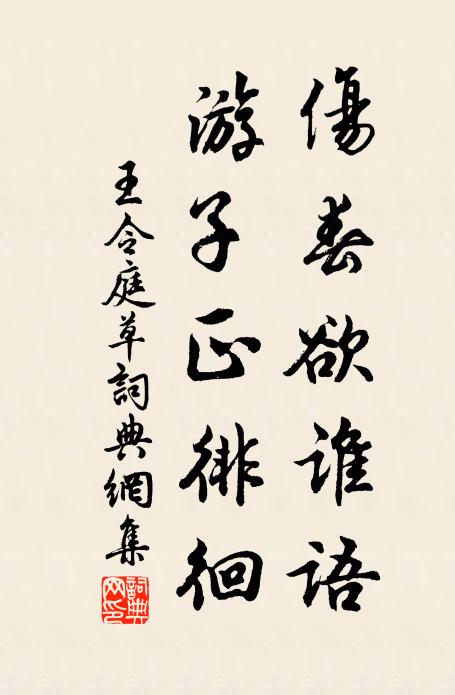 傷春欲誰語
游子正徘徊
王令庭草詞典網集
詞典網印